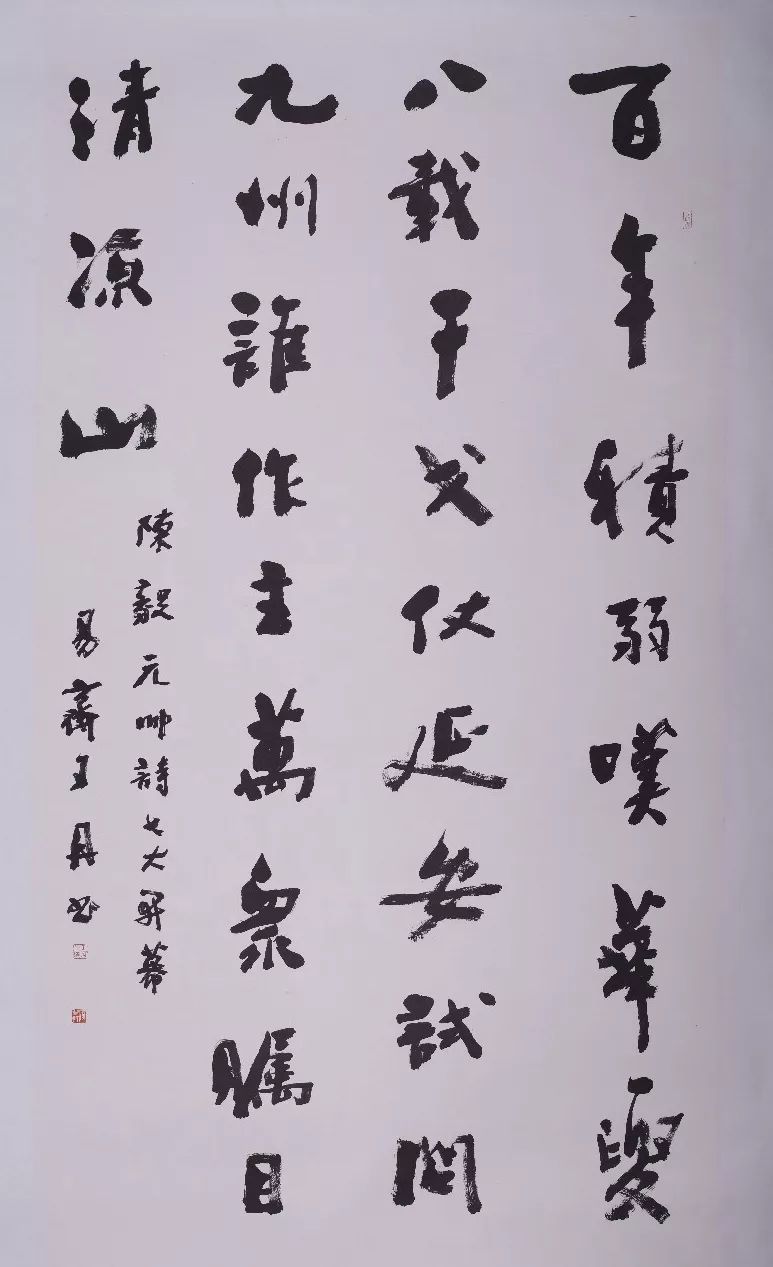 百年積弱嘆華夏
八載干戈仗延安試問
九州誰作主萬衆瞩目
清凉山
陳毅元帥詩七大開幕
易齋王丹书